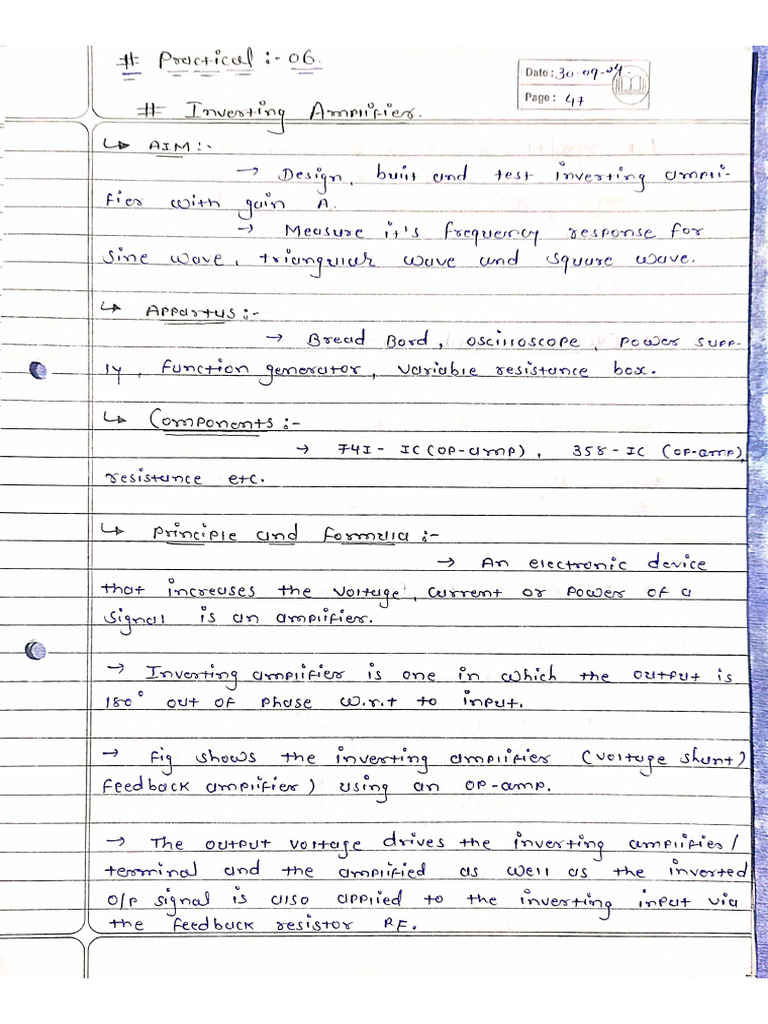 # Practical :- 06.
Date : 30-09-24.
Page : 47
# Inverting Amplifier.
↳ AIM :-
→ Design, built and test inverting ampli-
fier with gain A.
→ Measure it's frequency response for
sine wave, triangular wave and square wave.
↳ Appartus :-
→ Bread Bord, oscilloscope, power supp-
ly, function generator, variable resistance box.
↳ Components :-
→ 741- IC (OP-amp), 358-IC (OP-amp),
resistance etc.
↳ Principle and Formula :-
→ An electronic device
that increases the voltage, current or power of a
signal is an amplifier.
→ Inverting amplifier is one in which the output is
180° out of phase w.r.t to input.
→ Fig shows the inverting amplifier (voltage shunt)
feedback amplifier) using an OP-amp.
→ The output voltage drives the inverting amplifier/
terminal and the amplified as well as the inverted
O/P signal is also applied to the inverting input via
the feedback resistor RF.